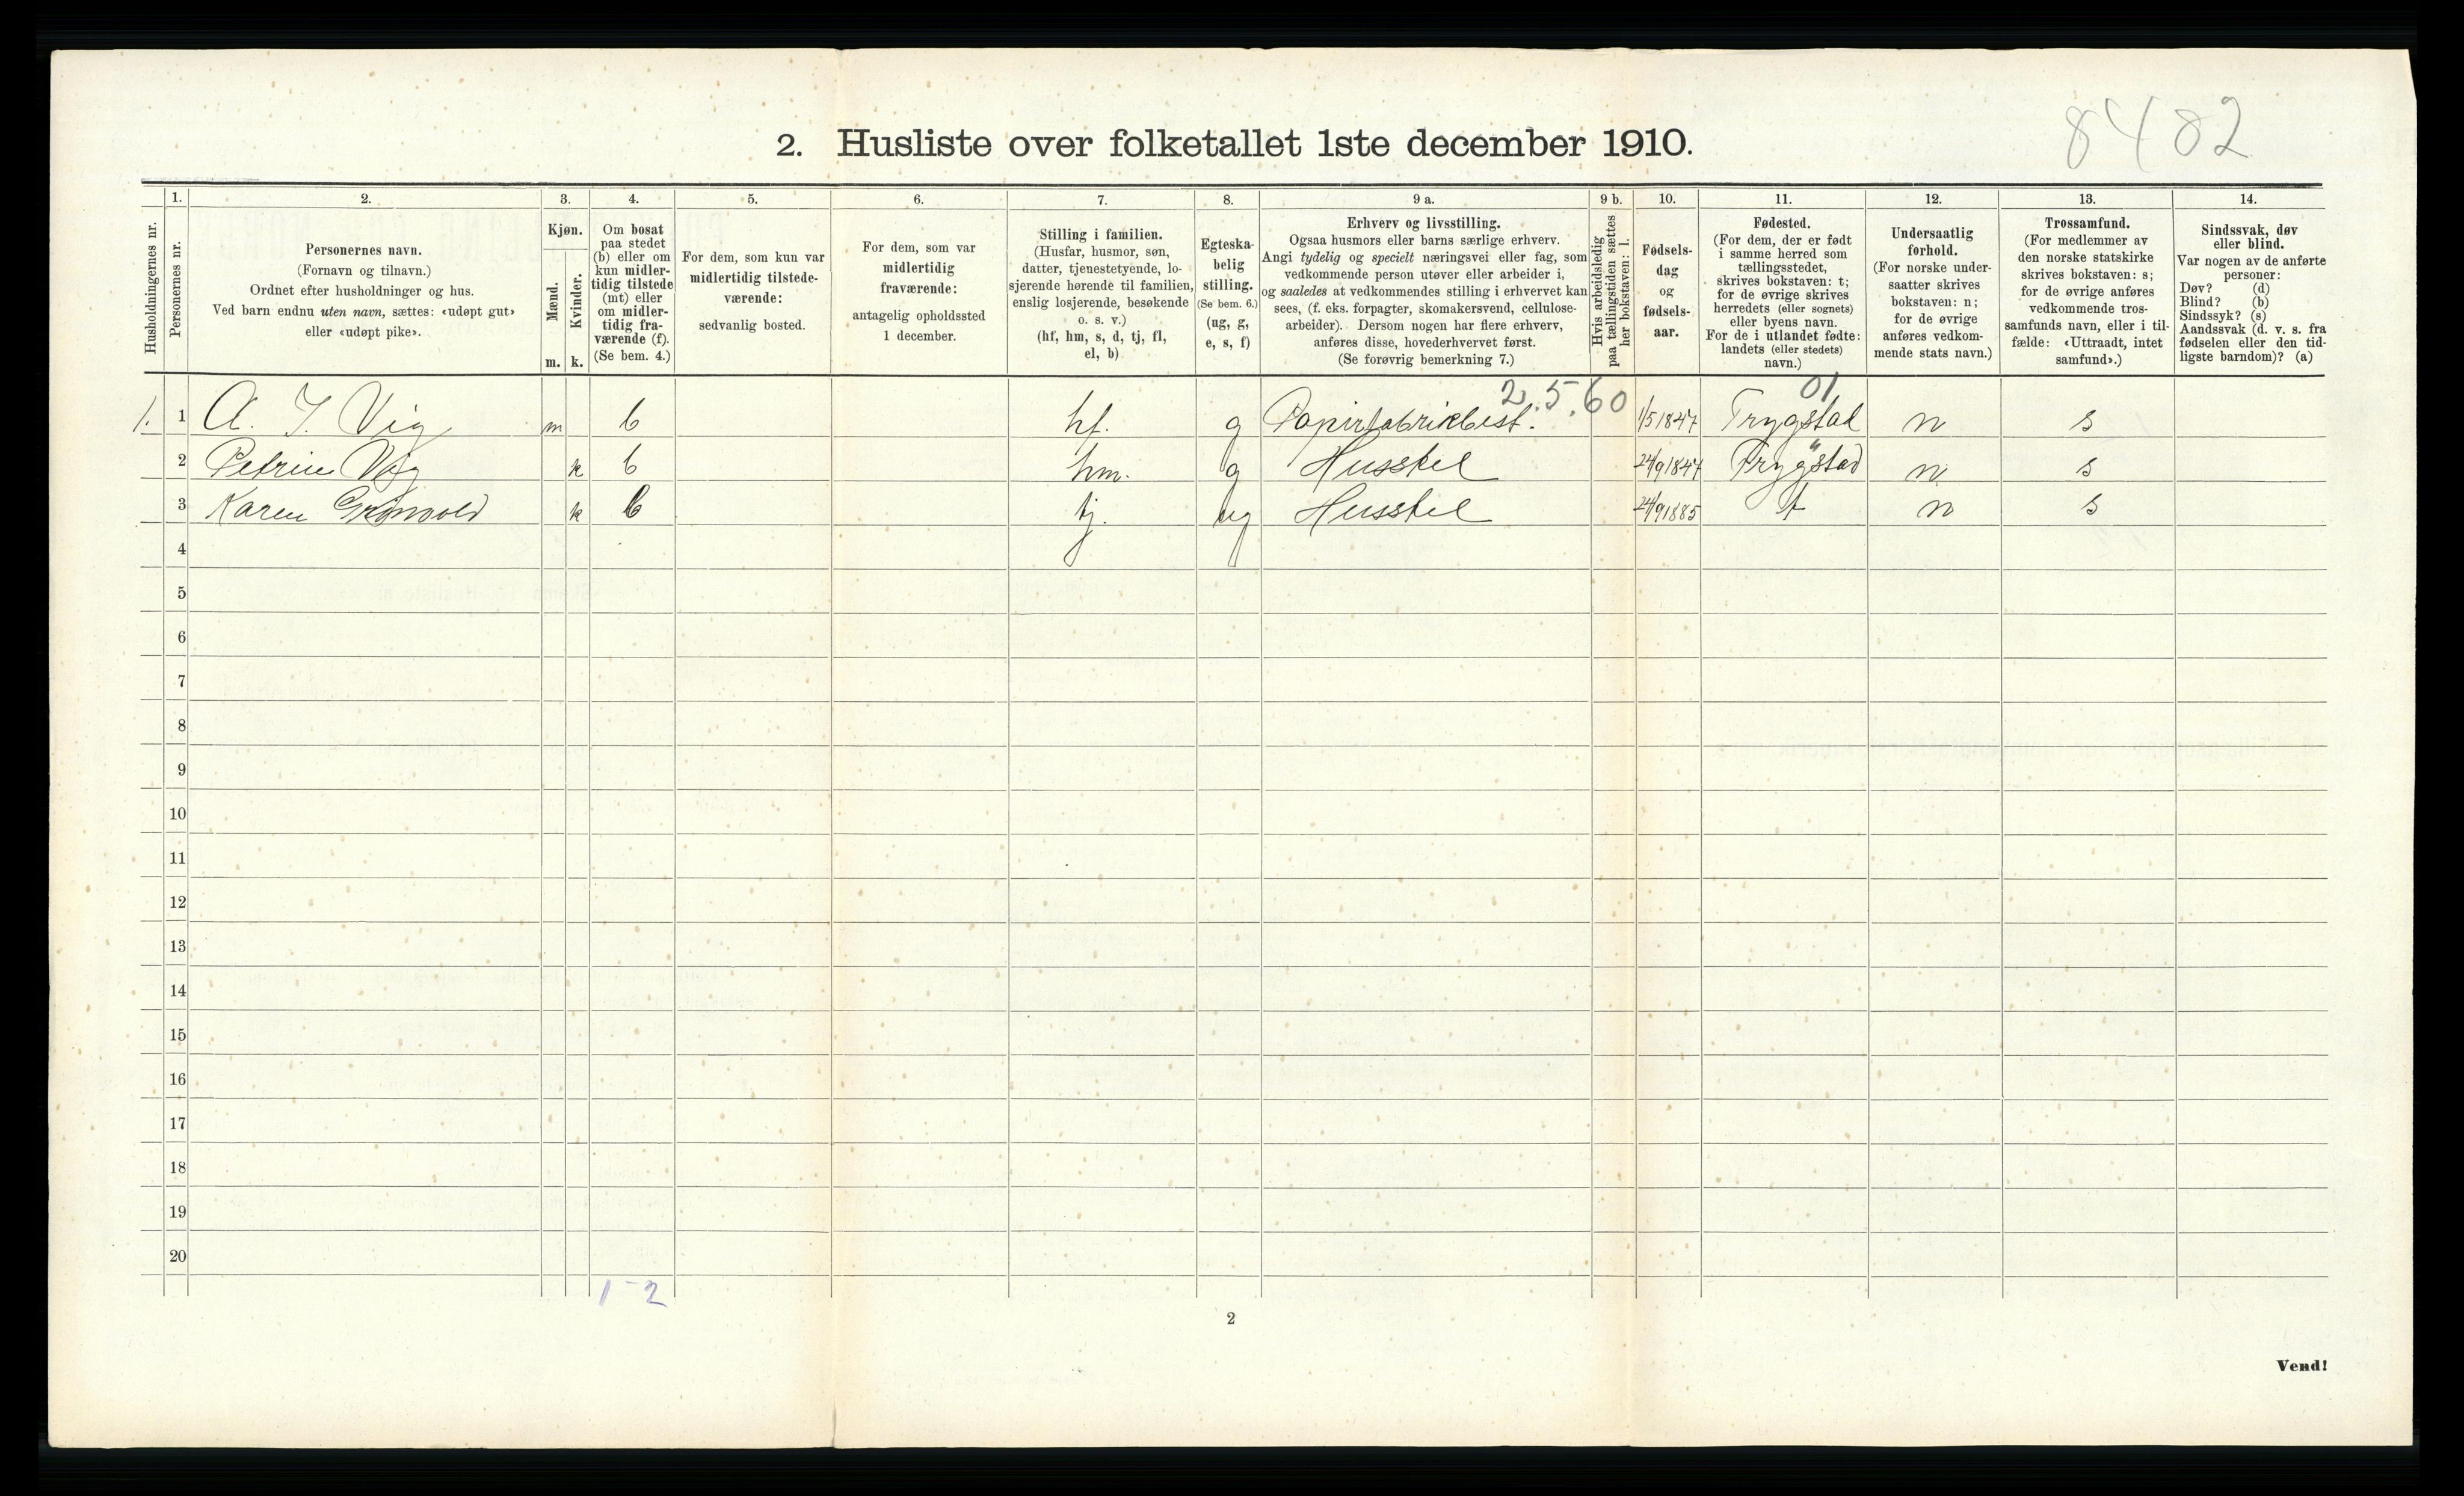 8482
2. Husliste over folketallet 1ste december 1910.
Husholdningernes nr.
1.
Personernes nr.
2.
Personernes navn.
(Fornavn og tilnavn.)
Ordnet efter husholdninger og hus.
Ved barn endnu uten navn, sættes: «udøpt gut»
eller «udøpt pike».
3.
Kjøn.
Mænd.
m.
Kvinder.
k.
4.
Om bosat
paa stedet
(b) eller om
kun midler-
tidig tilstede
(mt) eller
om midler-
tidig fra-
værende (f).
(Se bem. 4.)
5.
For dem, som kun var
midlertidig tilstede-
værende:
sedvanlig bosted.
6.
For dem, som var
midlertidig
fraværende:
antagelig opholdssted
1 december.
7.
Stilling i familien.
(Husfar, husmor, søn,
datter, tjenestetyende, lo-
sjerende hørende til familien,
enslig losjerende, besøkende
o. s. v.)
(hf, hm, s, d, tj, fl,
el, b)
8.
Egteska-
belig
stilling.
(Se bem. 6.)
(ug, g,
e, s, f)
9 a.
Erhverv og livsstilling.
Ogsaa husmors eller barns særlige erhverv.
Angi tydelig og specielt næringsvei eller fag, som
vedkommende person utøver eller arbeider i,
og saaledes at vedkommendes stilling i erhvervet kan
sees, (f. eks. forpagter, skomakersvend, cellulose-
arbeider). Dersom nogen har flere erhverv,
anføres disse, hovederhvervet først.
(Se forøvrig bemerkning 7.)
9 b.
Hvis arbeidsledig
paa tællingstiden sættes
her bokstaven: l.
10.
Fødsels-
dag
og
fødsels-
aar.
11.
Fødested.
(For dem, der er født
i samme herred som
tællingsstedet,
skrives bokstaven: t;
for de øvrige skrives
herredets (eller sognets)
eller byens navn.
For de i utlandet fødte:
landets (eller stedets)
navn.)
12.
Undersaatlig
forhold.
(For norske under-
saatter skrives
bokstaven: n;
for de øvrige
anføres vedkom-
mende stats navn.)
13.
Trossamfund.
(For medlemmer av
den norske statskirke
skrives bokstaven: s;
for de øvrige anføres
vedkommende tros-
samfunds navn, eller i til-
fælde: «Uttraadt, intet
samfund».)
14.
Sindssvak, døv
eller blind.
Var nogen av de anførte
personer:
Døv? (d)
Blind? (b)
Sindssyk? (s)
Aandssvak (d. v. s. fra
fødselen eller den tid-
ligste barndom)? (a)
2.5.60 01
1. 1 A. J. Vig m b hf. g Papirfabrikbest. 1/5 1847 Trygstad n s
2 Petrine Vig k b hm. g Husstel 24/9 1847 Trygstad n s
3 Karen Grönvold k b tj. ug Husstel 24/9 1885 t n s
4
5
6
7
8
9
10
11
12
13
14
15
16
17
18
19
20
1-2
2
Vend!